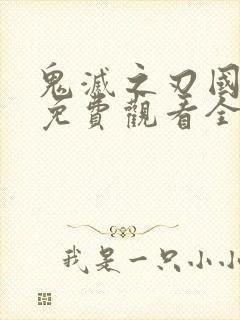 鬼滅之刃國
免費觀看全
我是一只小小